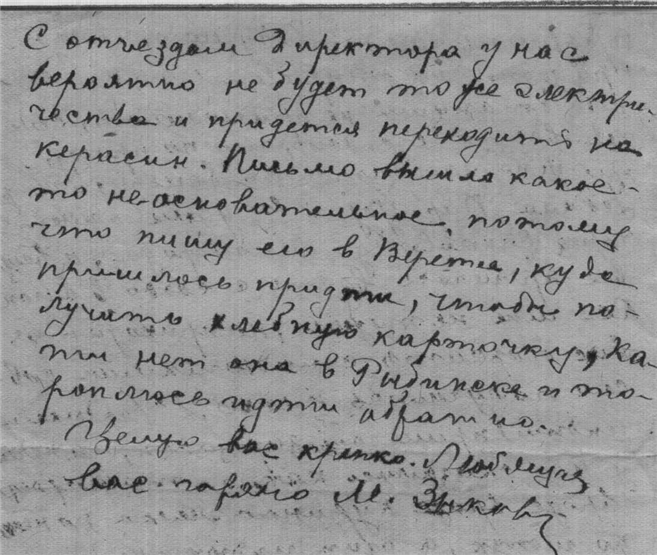 С отъездом Директора у нас
вероятно не будет то же электри-
чества и придется переходить на
керасин. Письмо вышло какое-
то не-основательное, потому
что пишу его в Веретье, куда
пришлось придти, чтобы по-
лучить хлебную карточку, Ка-
ти нет она в Рыбинске и то-
роплюсь идти обратно.
Целую вас крепко. Любящая
вас горячо М.